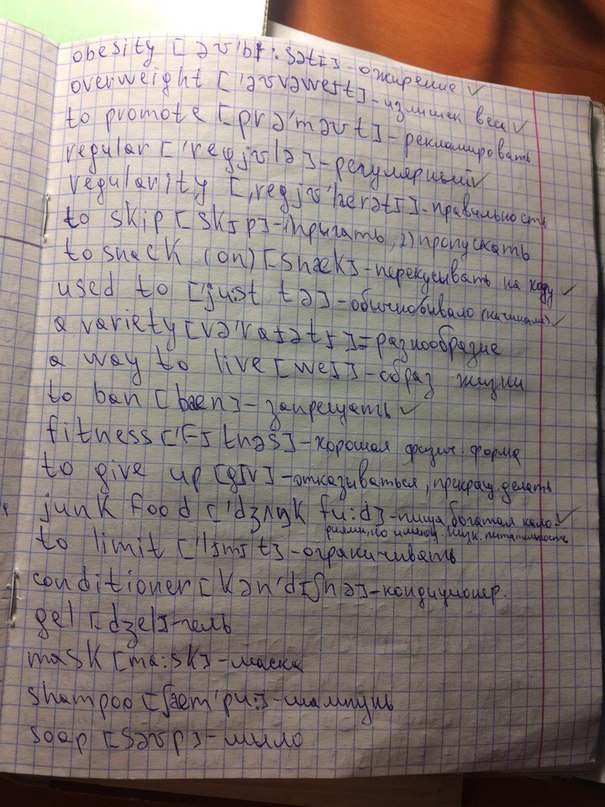 obesity [əʊ'bɪ:sətɪ] - ожирение ✓
overweight ['əʊvəweɪt] - излишек веса ✓
to promote [prə'məʊt] - рекламировать
regular ['regjʊlə] - регулярный ✓
regularity [,regjʊ'lærətɪ] - правильность
to skip [skɪp] - 1) прыгать, 2) пропускать
to snack (on) [snæk] - перекусывать на ходу ✓
used to [ju:st tə] - обычно бывало (начинали) ✓
a variety [və'raɪətɪ] = разнообразие
a way to live [weɪ] - образ жизни
to ban [bæn] - запрещать ✓
fitness ['fɪtnəs] - хорошая физич. форма
to give up [gɪv] - отказываться, прекращ. делать
junk food ['dʒʌŋk fu:d] - пища, богатая кало- ✓
риями, но имеющ. низк. питательность
to limit ['lɪmɪt] - ограничивать
conditioner [kən'dɪʃnə] - кондиционер.
gel [dʒel] - гель
mask [ma:sk] - маска
shampoo [ʃæm'pu:] - шампунь
soap [səʊp] - мыло